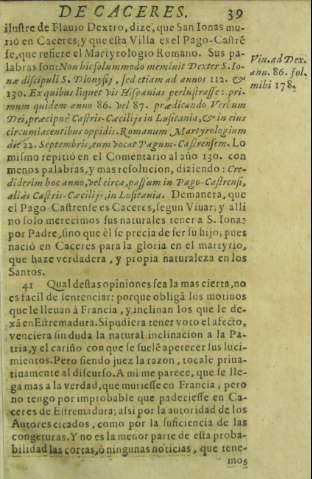 DE CACERES. 39
ilustre de Flauio Dextro, dize, que San Ionas mu-
rió en Caceres; y que esta Villa es el Pago-Castrẽ
se, que refiere el Martyrologio Romano. Sus pa-
labras son: Non hic solummodo meminit Dexter S. Io-
næ discipuli S. Dionysij, sed etiam ad annos 112. &
130. Ex quibus liquet vir Hispanias perlustrasse: pri-
mum quidem anno 86. vel 87. prædicando Verbum
Dei, præcipuè Castris-Cæcilijs in Lusitania, & in eius
circumiacentibus oppidis. Romanum Martyrologium
die 22. Septembris, eum vocat Pagum-Castrensem. Lo
mismo repitiò en el Comentario al año 130. con
menos palabras, y mas resolucion, diziendo: Cre-
diderim hoc anno, vel circa, passum in Pago-Castrensi,
aliàs Castris-Cæcilijs, in Lusitania. Demanera, que
el Pago-Castrense es Caceres, segun Viuar; y assi
no solo merecimos sus naturales tener a S. Ionas
por Padre, sino que èl se precia de ser su hijo, pues
nació en Caceres para la gloria en el martyrio,
que haze verdadera, y propia naturaleza en los
Santos.
41 Qual destas opiniones sea la mas cierta, no
es facil de sentenciar: porque obligã los motiuos
que le lleuan à Francia, y inclinan los que le de-
xã en Estremadura. Si pudiera tener voto el afecto,
venciera sin duda la natural inclinacion a la Pa-
tria, y el cariño con que se suelẽ apetecer sus luci-
mientos. Pero siendo juez la razon, tocale priua-
tiuamente al discurso. A mi me parece, que se lle-
ga mas a la verdad, que muriesse en Francia; pero
no tengo por improbable que padeciesse en Ca-
ceres de Estremadura; assi por la autoridad de los
Autores citados, como por la suficiencia de las
congeturas. Y no es la menor parte de esta proba-
bilidad las cortas, ò ningunas noticias, que tene-
mos
Viu. ad Dex.
ann. 86. fol.
mihi 178.